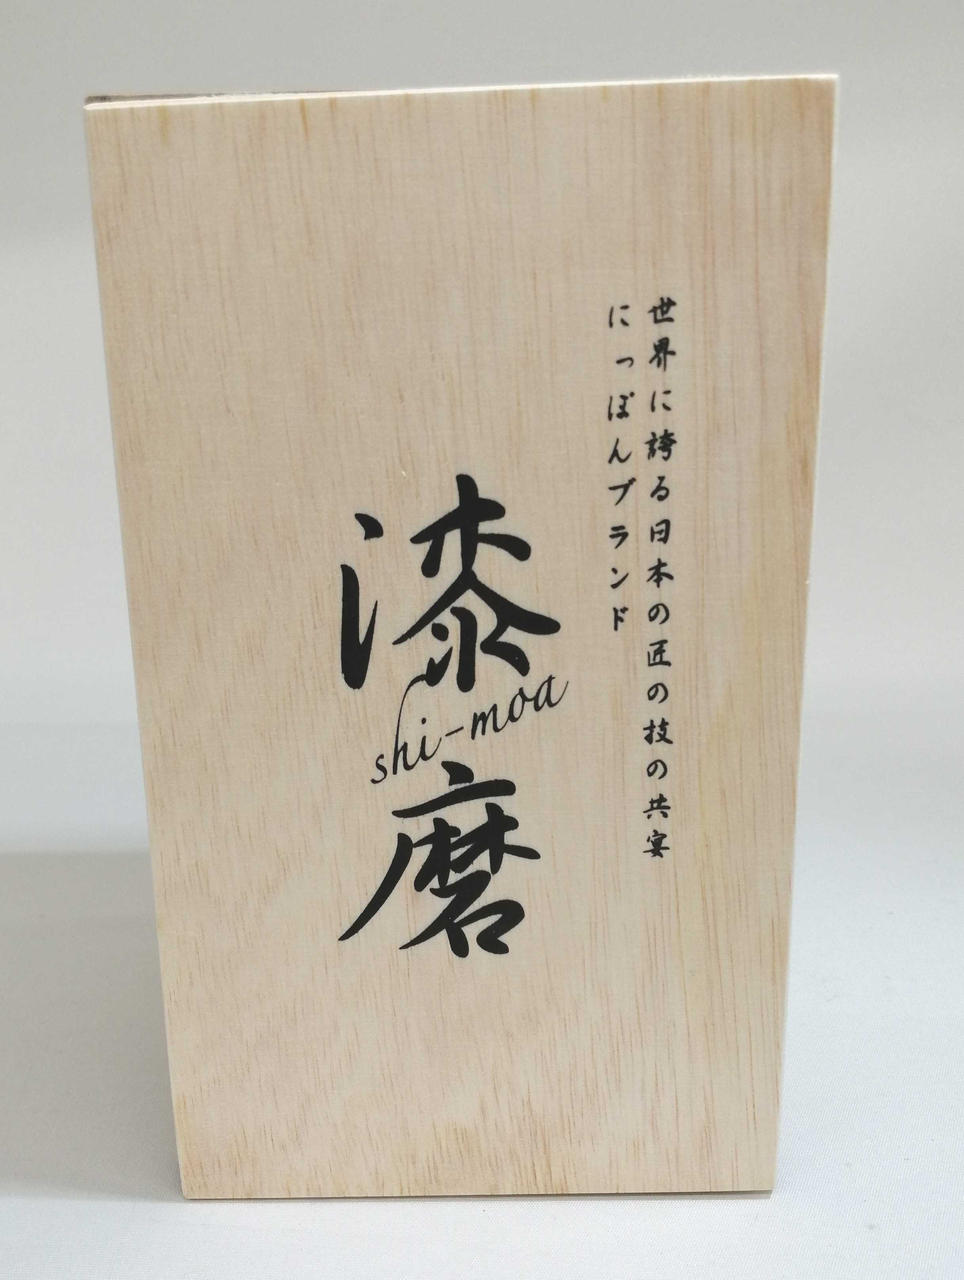 世界に誇る日本の匠の技の共宴
にっぽんブランド
漆
shi-moa
磨